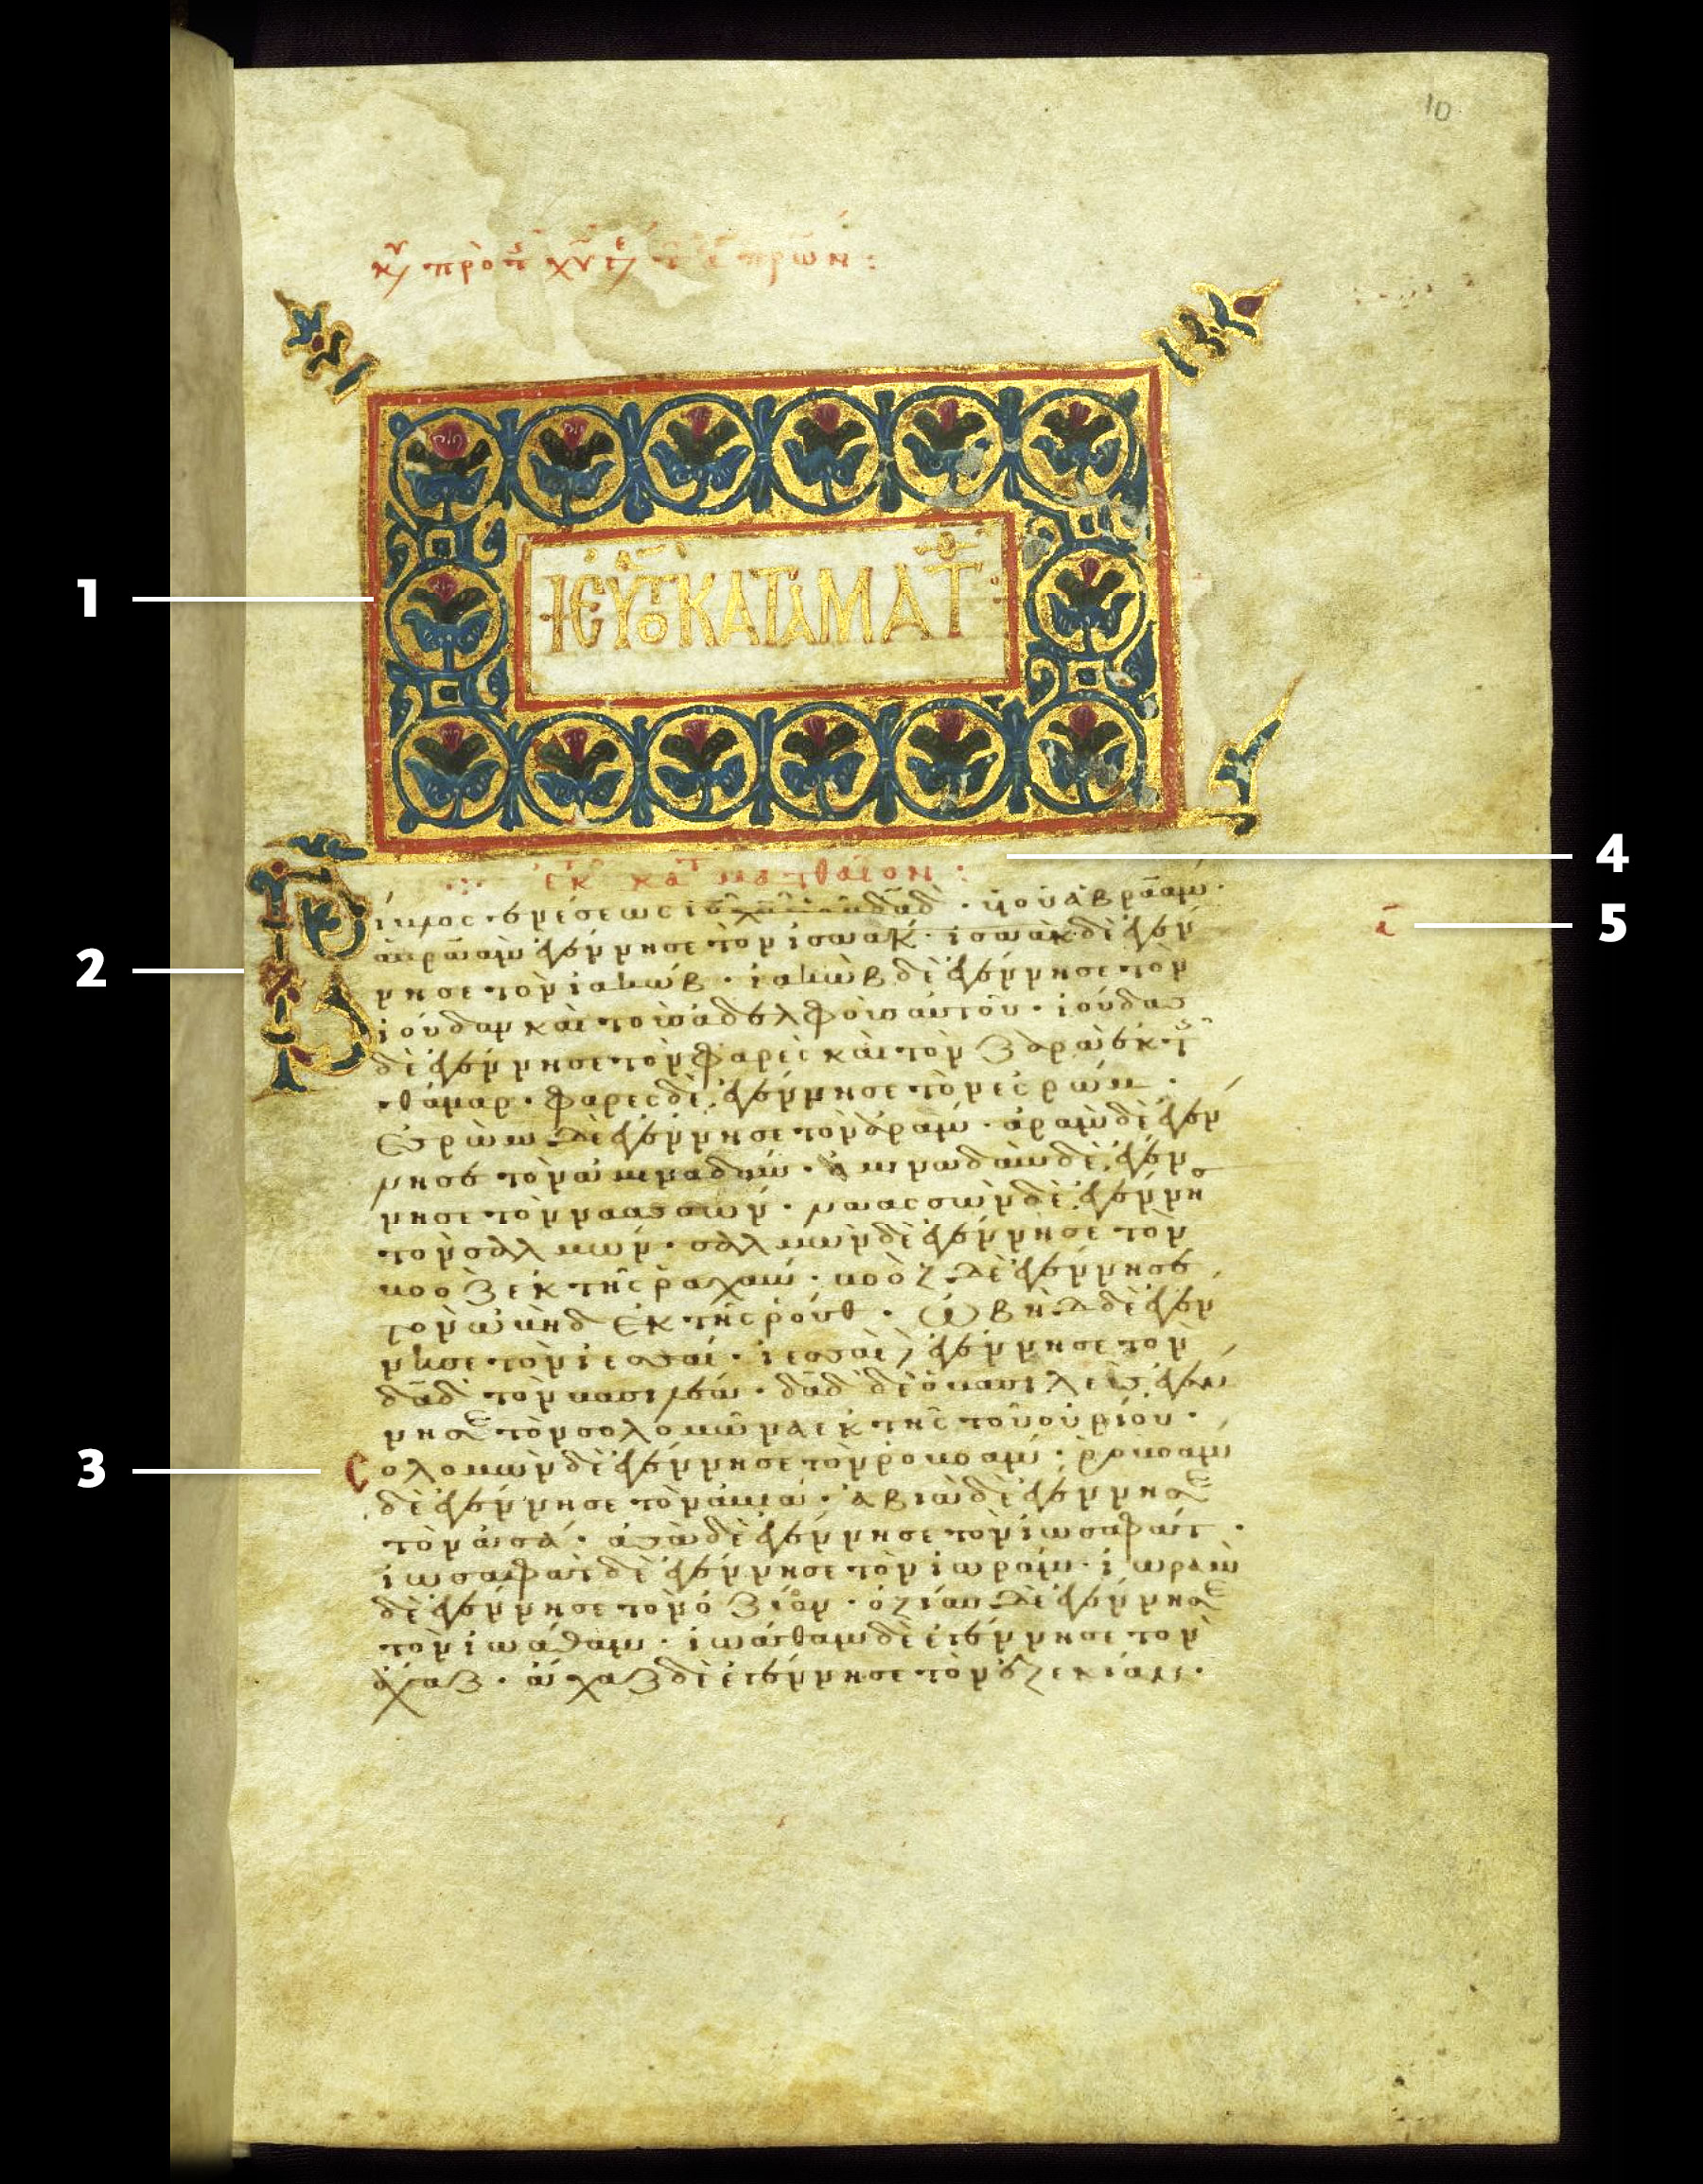 10
πρων :
ΕΥ ΤΟ ΚΑΤΑ ΜΑΤ
1
ἐκ κατ ματθαῖον :
4
Βίβλος γενέσεως ἰυ χυ υυ δαδ · υοῦ ἀβραάμ ·
5
ἀβραὰμ ἐγέννησε τὸν ἰσαάκ · ἰσαὰκ δὲ ἐγέν
2
νησε τὸν ἰακώβ · ἰακὼβ δὲ ἐγέννησε τὸν
ἰούδαν καὶ τοὺς ἀδελφοὺς αὐτοῦ · ἰούδας
δὲ ἐγέννησε τὸν φαρὲς καὶ τὸν ζαρὰ ἐκ τ
θάμαρ · φαρὲς δὲ ἐγέννησε τὸν ἐσρώμ ·
Ἐσρὼμ δὲ ἐγέννησε τὸν ἀράμ · ἀρὰμ δὲ ἐγέν
νησε τὸν ἀμιναδάμ · ἀμιναδὰμ δὲ ἐγέν
νησε τὸν ναασσών · ναασσὼν δὲ ἐγέννη
τὸν σαλμών · σαλμὼν δὲ ἐγέννησε τὸν
βοὸζ ἐκ τῆς ῥαχάβ · βοὸζ δὲ ἐγέννησε
τὸν ὠβὴδ ἐκ τῆς ῥούθ · Ὠβὴδ δὲ ἐγέν
νησε τὸν ἰεσσαί · ἰεσσαὶ ἐγέννησε τὸν
δαδ τὸν βασιλέα · δαδ δὲ ὁ βασιλεὺς ἐγέν
νησε τὸν σολομῶνα ἐκ τῆς τοῦ οὐρίου ·
3
Σολομὼν δὲ ἐγέννησε τὸν ῥοβοάμ · ῥοβοὰμ
δὲ ἐγέννησε τὸν ἀβιά · ἀβιὰ δὲ ἐγέννησε
τὸν ἀσά · ἀσὰ δὲ ἐγέννησε τὸν ἰωσαφάτ ·
ἰωσαφὰτ δὲ ἐγέννησε τὸν ἰωράμ · ἰωρὰμ
δὲ ἐγέννησε τὸν ὀζίαν · ὀζίας δὲ ἐγέννησε
τὸν ἰωάθαμ · ἰωάθαμ δὲ ἐγέννησε τὸν
ἄχαζ · ἄχαζ δὲ ἐγέννησε τὸν ἐζεκίαν ·